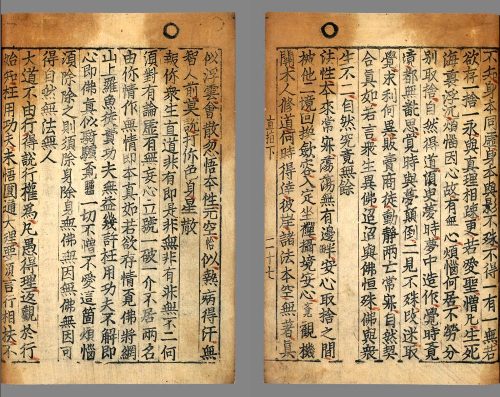 不知身本同虛身本與影不殊不得一有一無若
欲存一捨一永與真理相疎更若愛聖憎凡生死
海裏浮沉煩惱因心故有無心煩惱何居不勞分
別取捨自然得道須臾夢時夢中造作覺時覺
境都無飜思覺時與夢顛倒二見不殊改迷取
覺求利何異販賣商徒動靜兩亡常寂自然契
合真如若言衆生異佛迢迢與佛恒殊佛與衆
生不二自然究竟無餘
法性本來常寂蕩蕩無有邊畔安心取捨之間
被他二境回換歛容入定坐禪攝境安心覺觀機
關木人修道何時得達彼岸諸法本空無著
直指下 二十七
似浮雲會散忽悟本性元空恰似熱病得汗無
智人前莫說打你色身星散
報你衆生直道非有即是非無非有非無不二何
須對有論虛有無妄心立號一破一介不居兩名
由你情作無情即本真如若欲存情覓佛將網
山上羅魚徒費功夫無益幾許枉用功夫不解即
心即佛真似騎驢覓驢一切不憎不愛這箇煩惱
須除除之則須除身除身無佛無因無佛無因可
得自然無法無人
大道不由行得說行權為凡愚得理返觀於行
始知枉用功夫未悟圓通大理要須言行相扶不